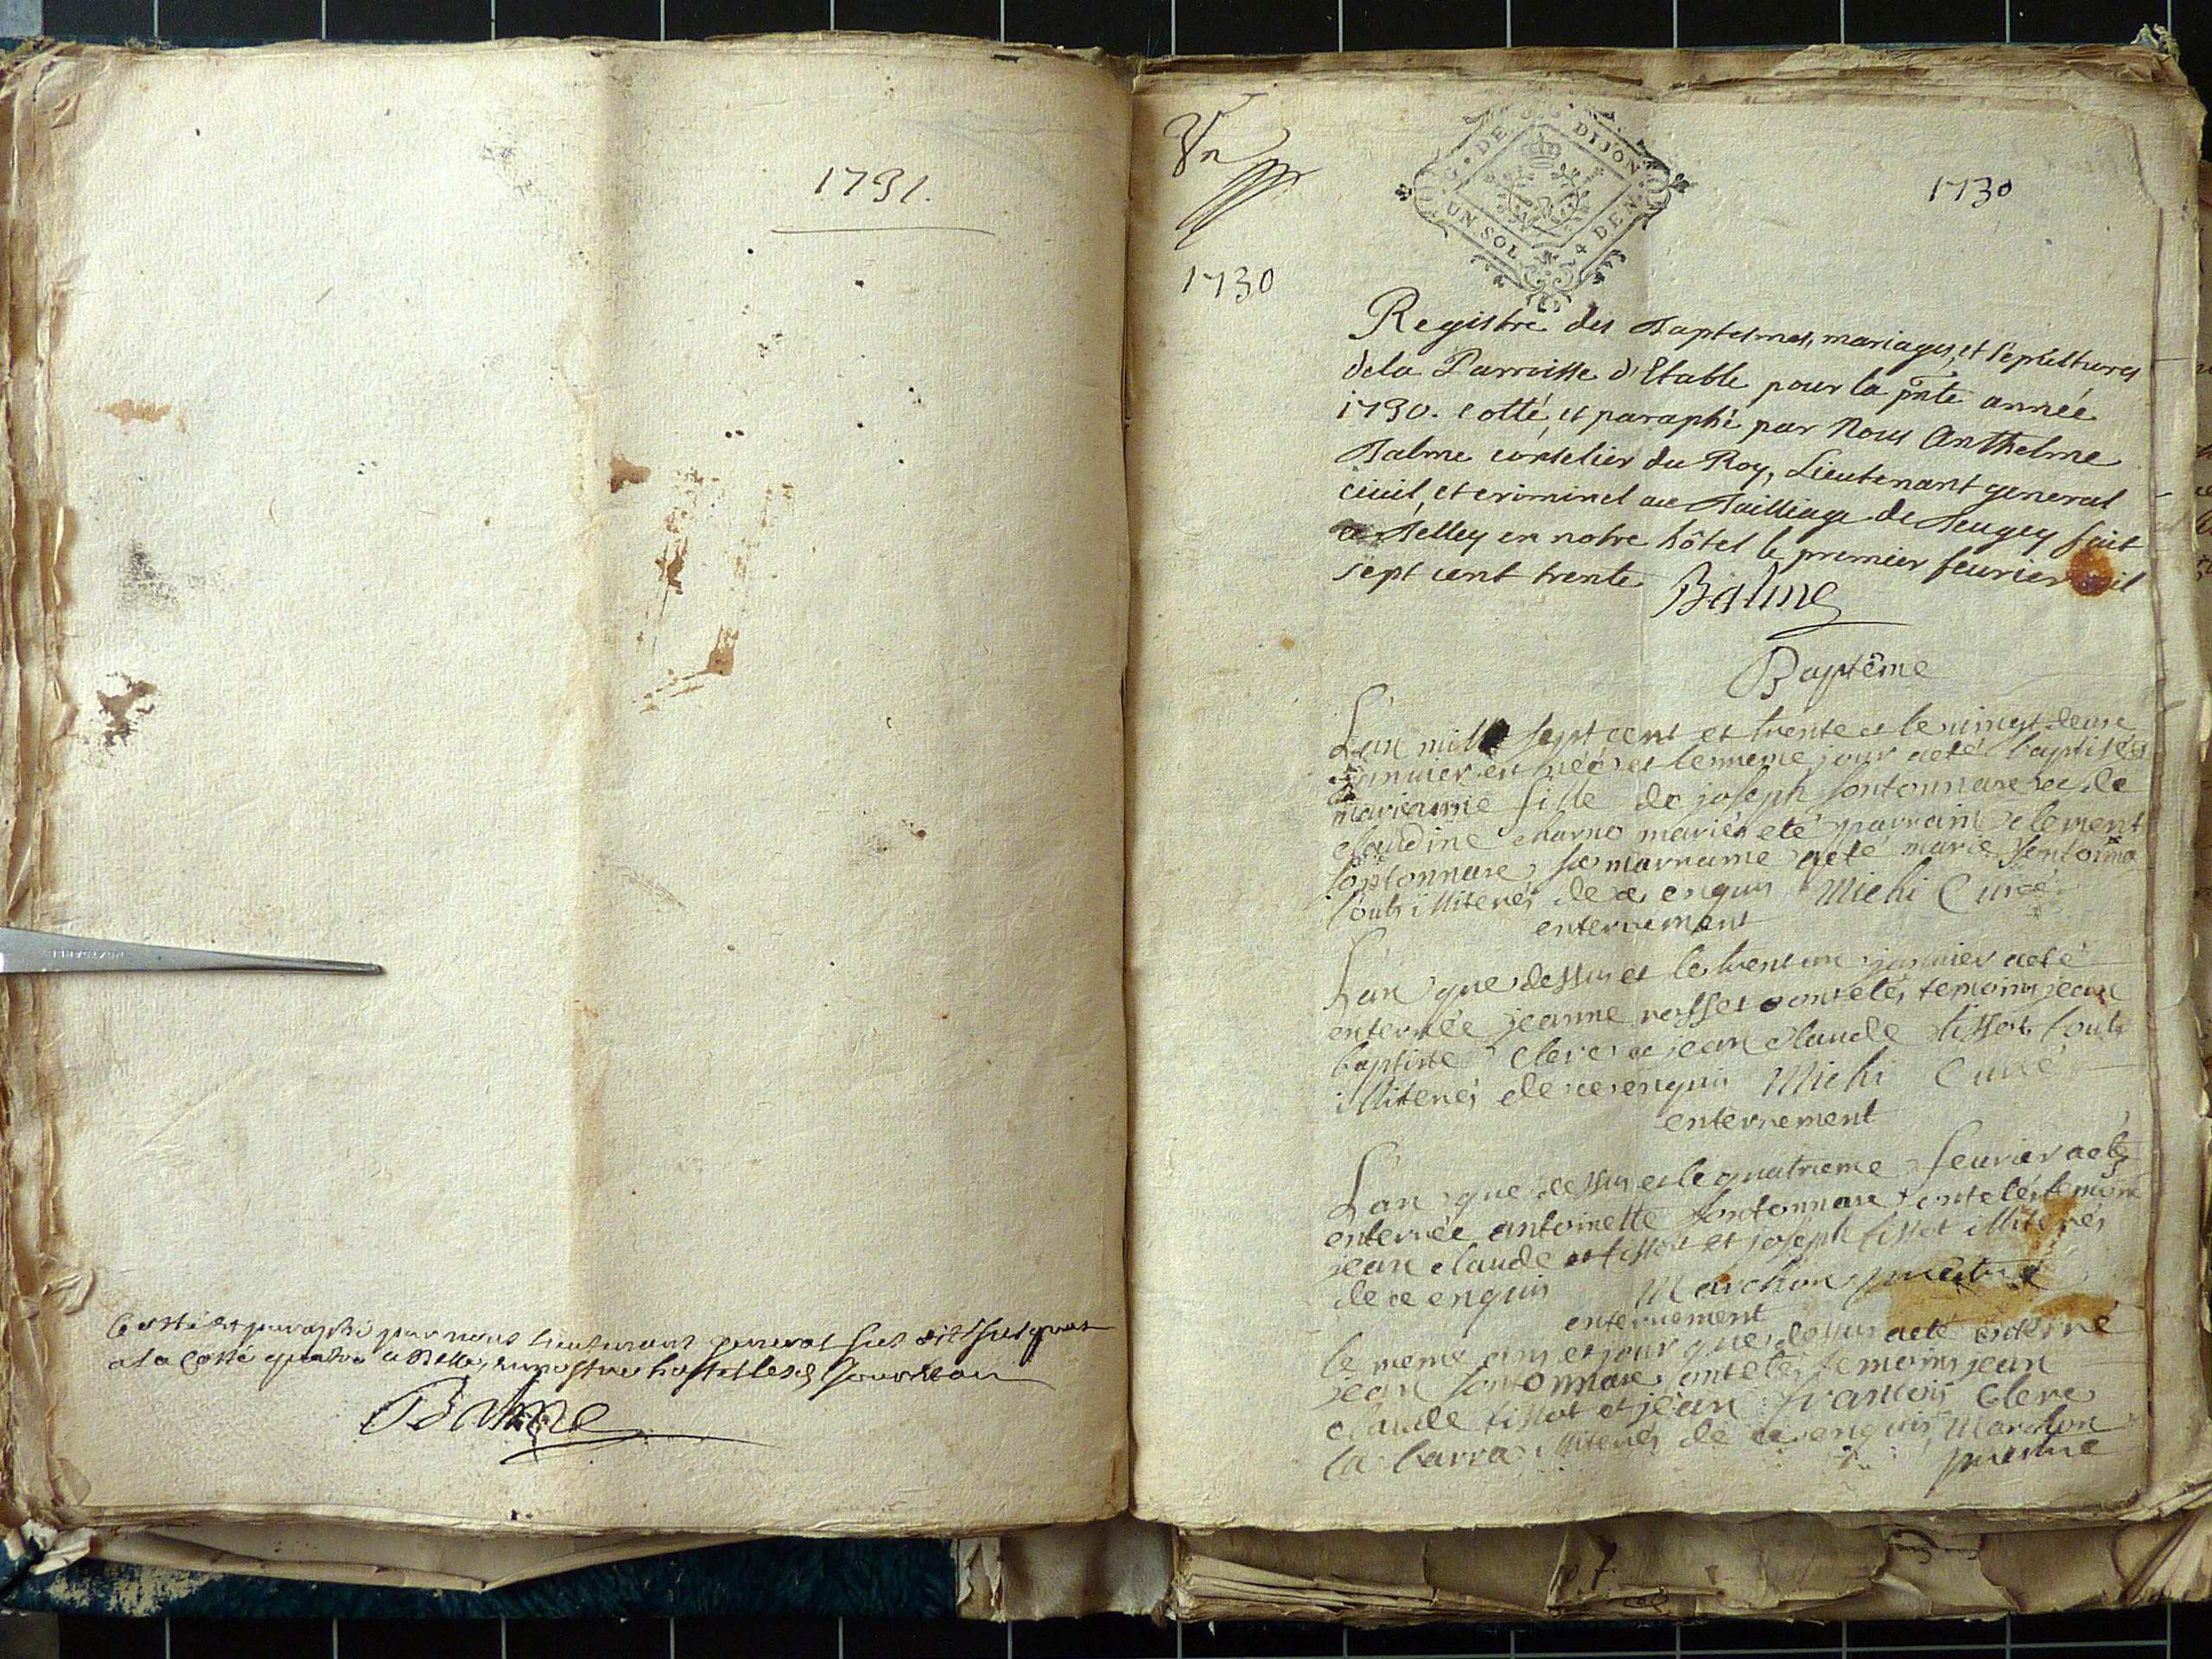 1731.
Cotté et paraphé par nous Lieutenant general sus dit jusques
a la cotté quatre a Belley en nostre hostel lesd jour et an
Balme
Un
1730
G. DE DIJON
UN SOL 4 DEN.
1730
Registre des Baptesmes, mariages, et sepultures
dela Parroisse d'Etable pour la pnte année
1730. cotté, et paraphé par Nous Anthelme
Balme conselier du Roy, Lieutenant general
ciuil, et criminel au Bailliage de Beugey fait
a Belley en notre hôtel le premier feurier mil
sept cent trente Balme
Baptême
L'an mille sept cent et trente et le vingt deux
janvier est néé et le meme jour a eté baptiséé
marianne fille de joseph fontonnare et de
claudine charno mariés eté parrain clement
fontonnare sa marraine a eté marie
touts illiterés de ce enquis Michi Curé
enterrement
L'an que dessus et le trent un janvier a eté
enterrée jeanne rosset ont etés temoins jean
baptiste clerc et jean claude tissot touts
illiterés de ce enquis Michi Curé
enterrement
L'an que dessus et le quatrieme feurier a eté
enterrée antoinette fontonnare ont etés temoins
jean claude tissot et joseph tissot illiterés
de ce enquis Marchon prestre
enterrement
le meme an et jour que dessus a eté enterré
jean fontonnare ont etés temoins jean
claude tissot et jean françois clerc
la barra illiterés de ce enquis Marchon
prestre